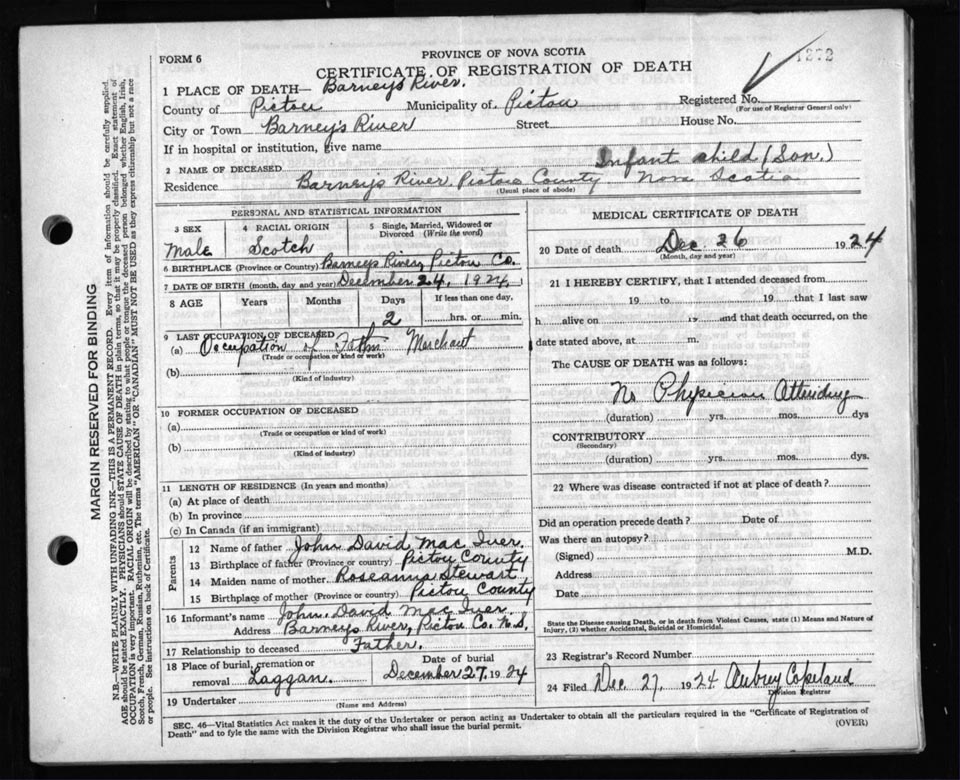 FORM 6
PROVINCE OF NOVA SCOTIA
1272
CERTIFICATE OF REGISTRATION OF DEATH
1 PLACE OF DEATH— Barney's River.
County of Pictou Municipality of Pictou Registered No.
(For use of Registrar General only)
City or Town Barney's River Street House No.
If in hospital or institution, give name
2 NAME OF DECEASED Infant child (Son.)
Residence Barneys River, Pictou County Nova Scotia
(Usual place of abode)
PERSONAL AND STATISTICAL INFORMATION
3 SEX 4 RACIAL ORIGIN 5 Single, Married, Widowed or Divorced (Write the word)
Male Scotch
6 BIRTHPLACE (Province or Country) Barneys River, Pictou Co.
7 DATE OF BIRTH (month, day and year) December 24, 1924.
8 AGE Years Months Days If less than one day,
2 hrs. or min.
9 LAST OCCUPATION OF DECEASED
(a) Occupation of Father Merchant
(Trade or occupation or kind of work)
(b)
(Kind of industry)
10 FORMER OCCUPATION OF DECEASED
(a)
(Trade or occupation or kind of work)
(b)
(Kind of industry)
11 LENGTH OF RESIDENCE (In years and months)
(a) At place of death
(b) In province
(c) In Canada (if an immigrant)
Parents
12 Name of father John David Mac Iver.
13 Birthplace of father (Province or country) Pictou County
14 Maiden name of mother Roseanna Stewart
15 Birthplace of mother (Province or country) Pictou County
16 Informant's name John David Mac Iver
Address Barneys River, Pictou Co. N.S.
17 Relationship to deceased Father.
18 Place of burial, cremation or removal Laggan. Date of burial December 27, 1924
19 Undertaker
(Name and Address)
MEDICAL CERTIFICATE OF DEATH
20 Date of death Dec. 26 1924
(Month, day and year)
21 I HEREBY CERTIFY, that I attended deceased from
19 to 19 that I last saw
h alive on 19 and that death occurred, on the
date stated above, at m.
The CAUSE OF DEATH was as follows:
No Physician Attending
(duration) yrs. mos. dys
CONTRIBUTORY
(Secondary)
(duration) yrs. mos. dys.
22 Where was disease contracted if not at place of death?
Did an operation precede death? Date of
Was there an autopsy?
(Signed) M.D.
Address
Date
State the Disease causing Death, or in death from Violent Causes, state (1) Means and Nature of
Injury, (2) whether Accidental, Suicidal or Homicidal.
23 Registrar's Record Number
24 Filed Dec. 27, 1924 Aubrey Copeland
Division Registrar
SEC. 46—Vital Statistics Act makes it the duty of the Undertaker or person acting as Undertaker to obtain all the particulars required in the "Certificate of Registration of
Death" and to fyle the same with the Division Registrar who shall issue the burial permit. (OVER)
MARGIN RESERVED FOR BINDING
N.B.—WRITE PLAINLY WITH UNFADING INK—THIS IS A PERMANENT RECORD. Every item of information should be carefully supplied.
AGE should be stated EXACTLY. PHYSICIANS should STATE CAUSE OF DEATH in plain terms, so that it may be properly classified. Exact statement of
OCCUPATION is very important. RACIAL ORIGIN will be described by stating to what people or tongue the deceased person belonged whether English, Irish,
Scotch, French, German, Russian, Ruthenian, etc. The terms "AMERICAN" OR "CANADIAN" MUST NOT BE USED as they express citizenship but not a race
or people. See instructions on back of Certificate.